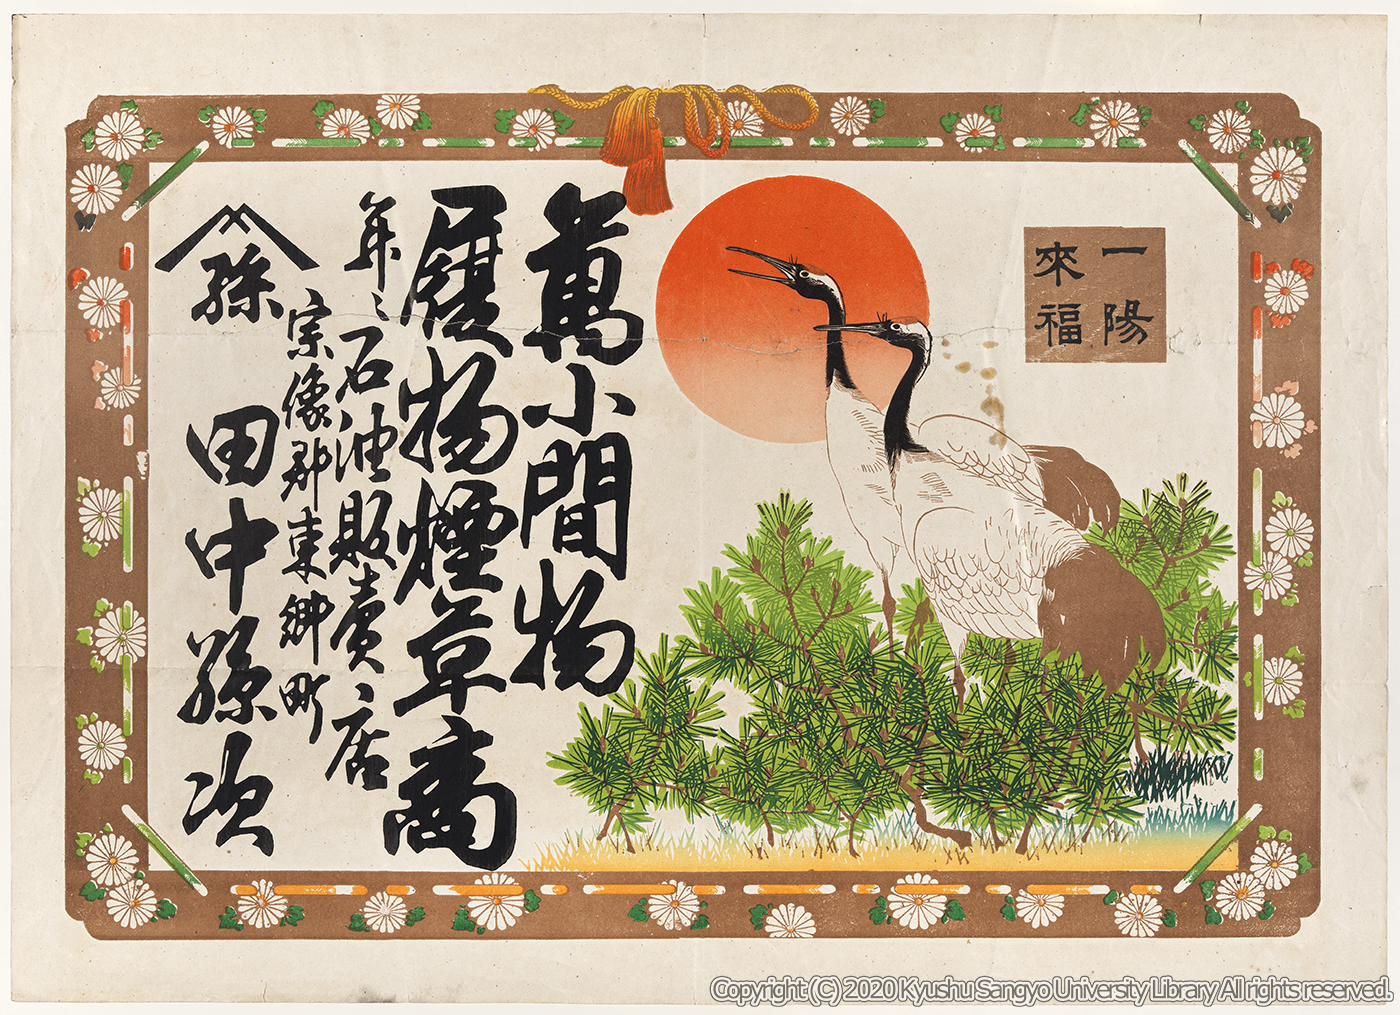 一陽
來福
萬小間物
履物煙草商
并ニ石油販賣店
宗像郡東郷町
孫
田中孫次
Copyright (C) 2020 Kyushu Sangyo University Library All rights reserved.